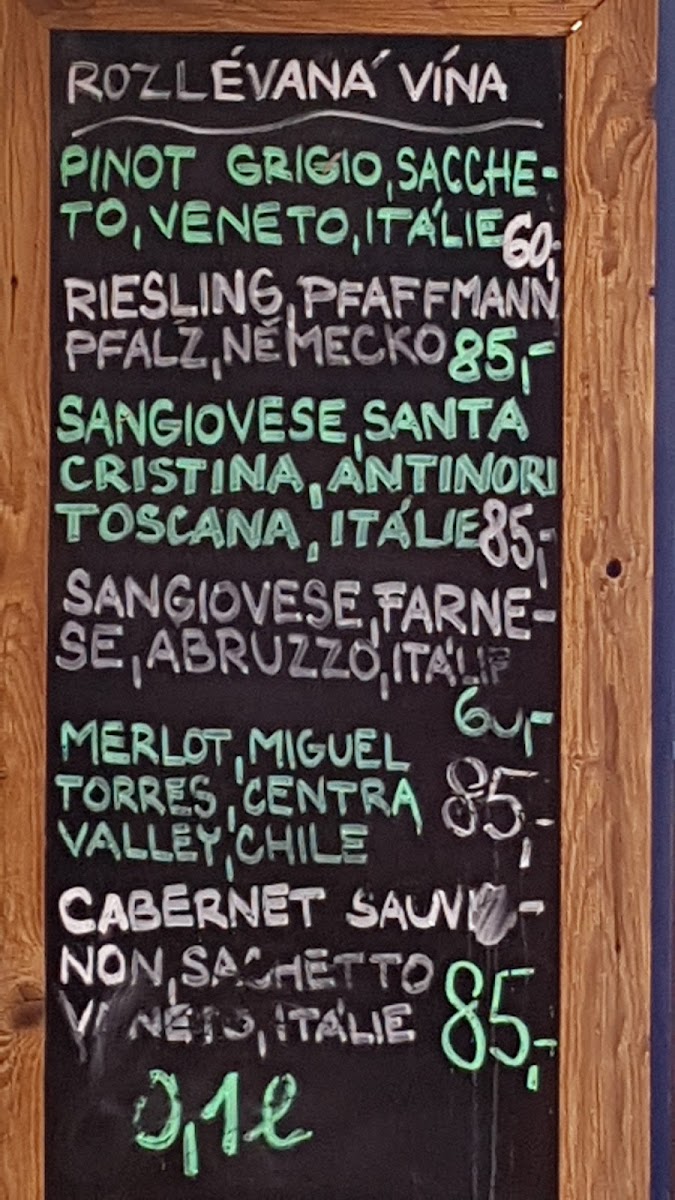 ROZLÉVANÁ VÍNA
PINOT GRIGIO, SACCHE-
TO, VENETO, ITÁLIE 60,-
RIESLING, PFAFFMANN
PFALZ, NĚMECKO 85,-
SANGIOVESE, SANTA
CRISTINA, ANTINORI
TOSCANA, ITÁLIE 85,-
SANGIOVESE, FARNE-
SE, ABRUZZO, ITÁLIE
60,-
MERLOT, MIGUEL
TORRES, CENTRA
VALLEY, CHILE 85,-
CABERNET SAUVI-
NON, SACHETTO
VENETO, ITÁLIE 85,-
0,1l